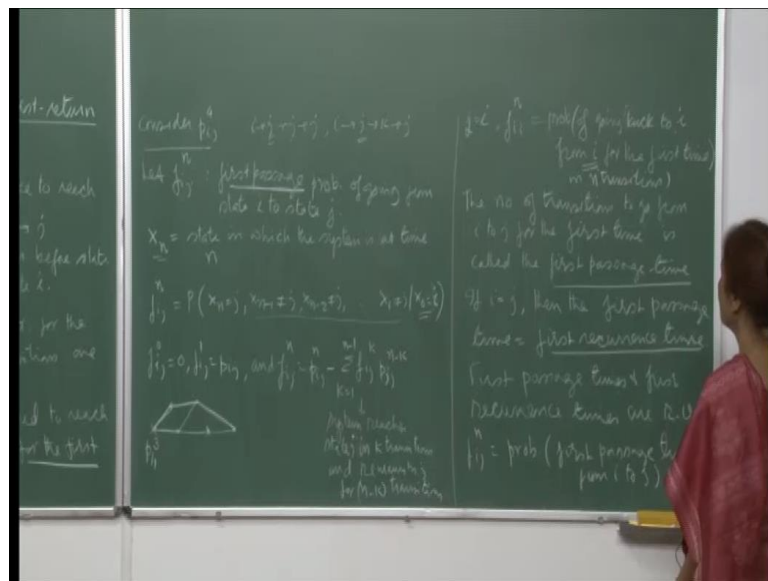 st-return
to reach
j
before state
i.
for the
one
to reach
for the first
Consider p_ij^4 i→j→j→j , i→j→k→j
Let f_ij^n : first passage prob of going from
state i to state j.
X_n = state in which the system is at time
n
f_ij^n = P(X_n=j, X_n-1≠j, X_n-2≠j, . . X_1≠j | X_0=i)
f_ij^0=0, f_ij^1=p_ij, and f_ij^n = p_ij^n - Σ_{k=1}^{n-1} f_ij^k p_jj^{n-k}
System reaches
state j in k transitions
and
for (n-k) transitions
p_ij^3
j=i, f_ii^n = prob(of going back to i
from i for the first time)
in n transitions)
The no of transition to go from
i to j for the first time is
called the first passage time
If i=j, then the first passage
time = first recurrence time
First passage times & first
recurrence times are R.V
f_ij^n = prob (first passage
from i to j)